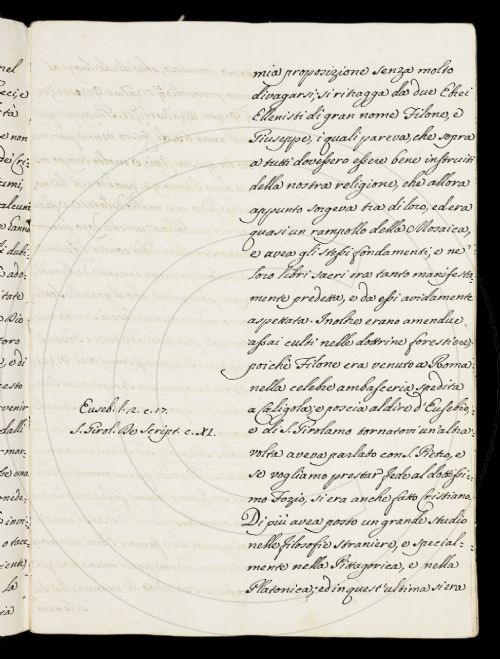 mia proposizione senza molto
divagarsi; si ritragga da due Ebrei
Ellenisti di gran nome Filone, e
Giuseppe, i quali pareva, che sopra
a tutti dovessero essere bene instruiti
della nostra religione, che allora
appunto sorgeva tra di loro, ed era
quasi un rampollo della Mosaica,
e avea gli stessi fondamenti, e ne'
loro libri sacri era tanto manifesta-
mente predetta, e da essi avidamente
aspettata. Inoltre erano amendue
assai culti nelle dottrine forestiere
poichè Filone era venuto a Roma
nelle celebre ambasceria spedita
a Caligola; e poscia al dire d'Eusebio,
e di S. Girolamo tornatovi un'altra
volta aveva parlato con S. Pietro, e
se vogliamo prestar fede al dottissi-
mo Fozio, si era anche fatto cristiano.
Di più avea posto un grande studio
nelle filosofie straniere, e special-
mente nella Pittagorica, e nella
Platonica; ed in quest'ultima si era
Euseb. l. 2. c. 17.
S. Girol. De Script. c. XI.